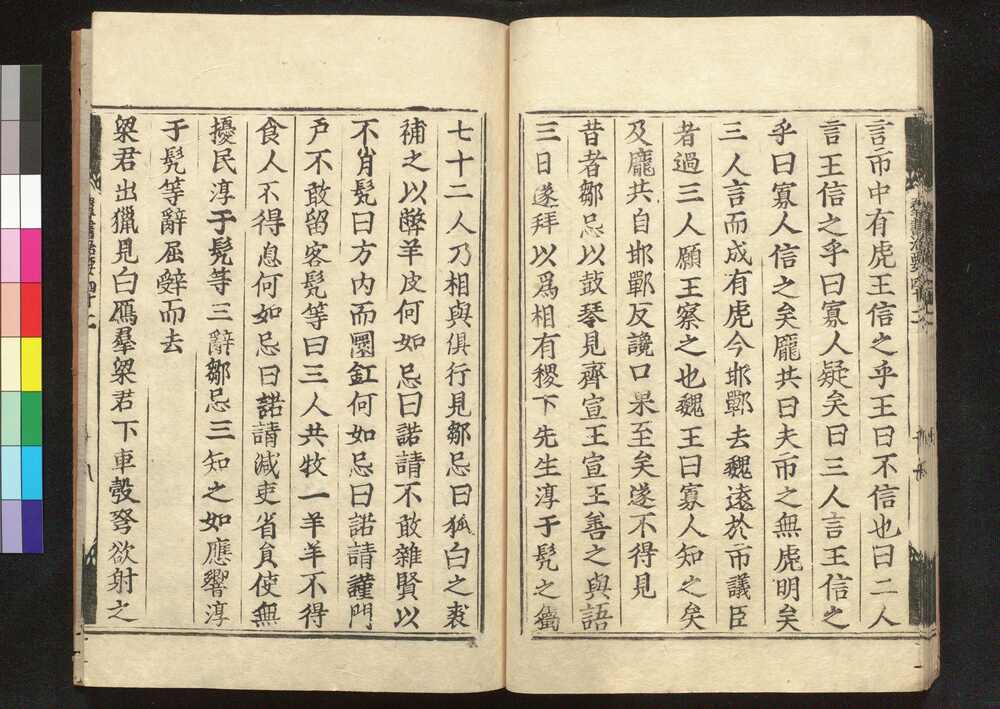 言市中有虎王信之乎王曰不信也曰二人
言王信之乎曰寡人疑矣曰三人言王信之
乎曰寡人信之矣龐共曰夫市之無虎明矣
三人言而成有虎今邯鄲去魏遠於市議臣
者過三人願王察之也魏王曰寡人知之矣
及龐共自邯鄲反讒口果至矣遂不得見
昔者鄒忌以鼓琴見齊宣王宣王善之與語
三日遂拜以爲相有稷下先生淳于髡之屬
七十二人乃相與俱行見鄒忌曰狐白之裘
補之以弊羊皮何如忌曰諾請不敢雜賢以
不肖髡曰方内而圜釭何如忌曰諾請謹門
戸不敢留客髡等曰三人共牧一羊羊不得
食人不得息何如忌曰諾請減吏省貟使無
擾民淳于髡等三辭鄒忌三知之如應響淳
于髡等辭屈辤而去
梁君出獵見白鴈羣梁君下車彀弩欲射之
群書治要四十二
八